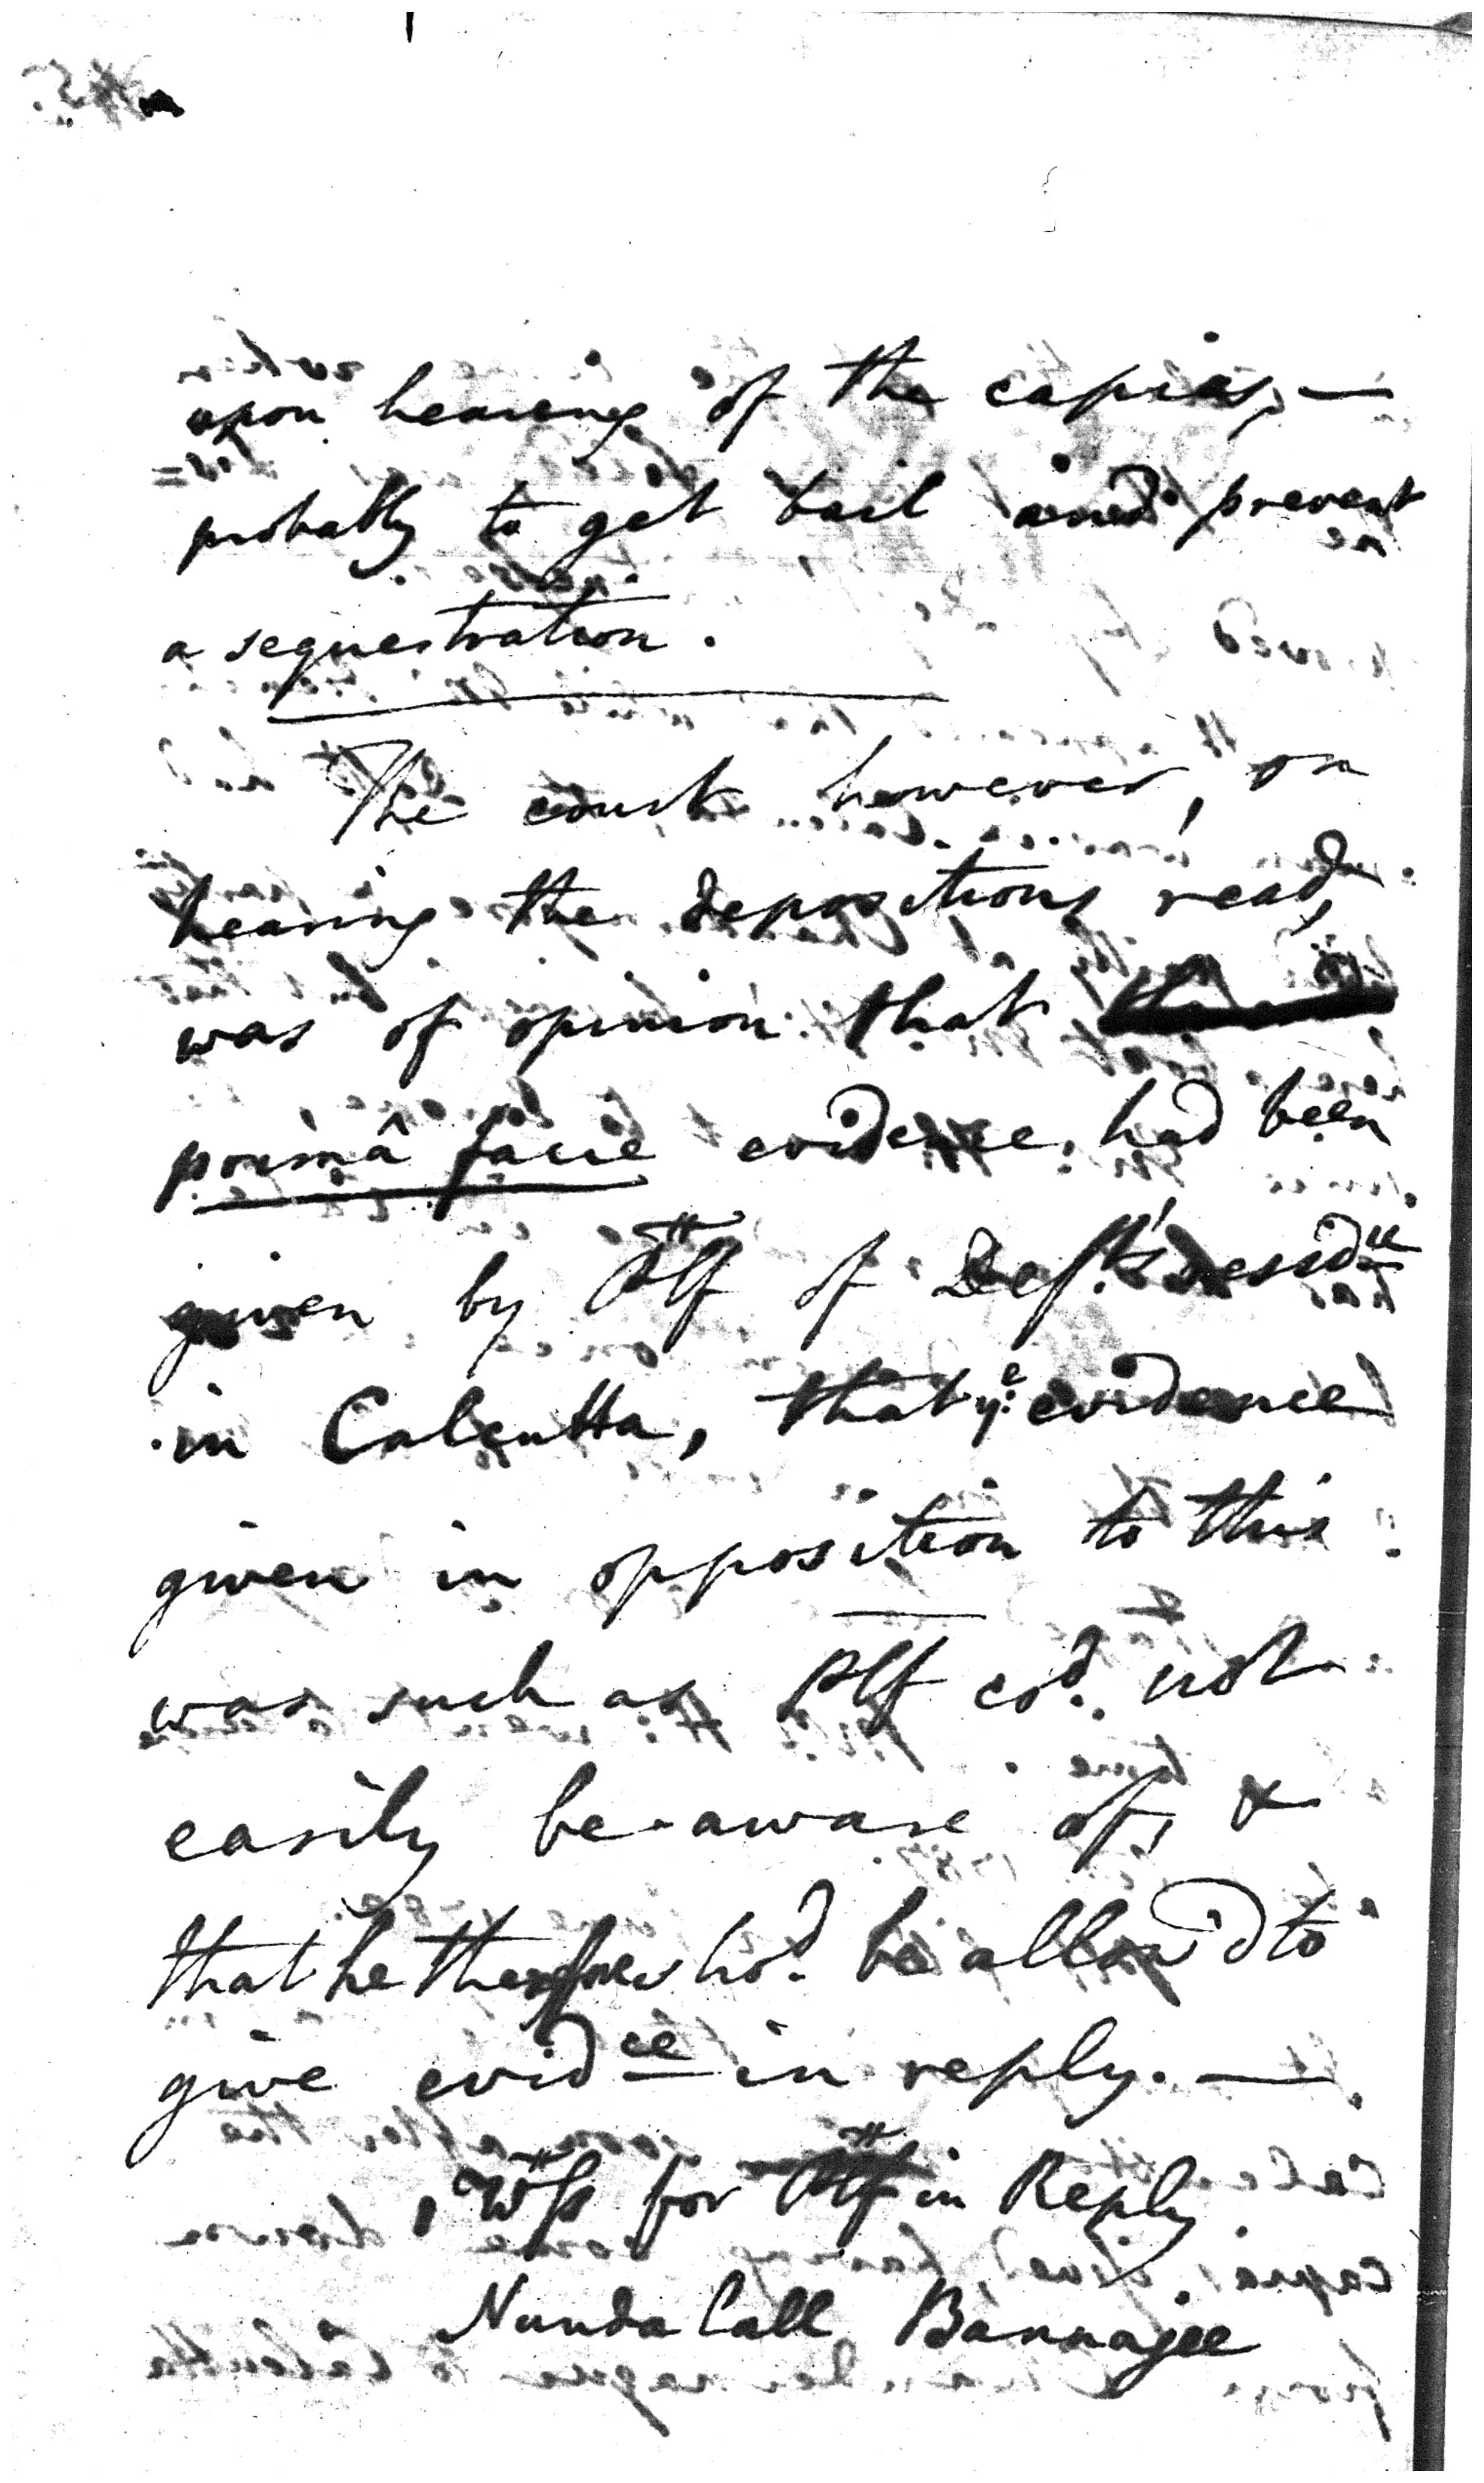 upon hearing of the capias, —
probably to get bail and prevent
a sequestration.
The court however, on
hearing the depositions read,
was of opinion that
primâ facie evidence had been
given by Plf of Def.t's resid.ce
in Calcutta, that ye. evidence
given in opposition to this
was such as Plf cod. not
easily be aware of, &
that he therefore shod. be allow'd to
give evidce in reply. —
Wss for Plf in Reply
Nunda Lall Bannajee